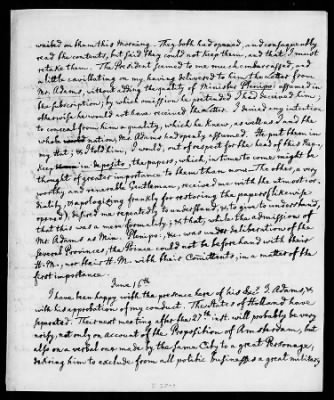 waited on them this morning. They both had opened, and consequently
read the contents, but said they could not keep them, and that I must
retake them. The President seemed to me much embarrassed, and
a little cavillating on my having delivered to him the letter from
Mr. Adams, without adding the quality of Minister Plenipo: assumed in
the subscription; by which omission he pretended I had deceived him,
otherwise he would not have received the letter. I denied any intention
to conceal from him a quality, which he knew, as well as I and the
whole nation, Mr. Adams had openly assumed. He put them in
my Hat; & I told him, I would, out of respect for the head of this Rep.,
keep in deposito, the papers, which, in time to come might be
thought of greater importance to them than now. The other, a very
worthy and venerable Gentleman, received me with the utmost cor-
diality, & apologizing frankly for restoring the papers (likewise
opened) desired me repeatedly to understand, & to give to understand,
that this was a mere formality; & that, while the admission of
Mr. Adams as Min: Plenipo: &c. was under deliberation of the
several Provinces, the Prince could not be before hand with their
H. M., nor their H. M. with their Constituents, in a matter of the
first importance.
June 16th
I have been happy with the presence here of his Excy. J. Adams, &
with his approbation of my conduct. The States of Holland have
separated. Their next meeting after the 27th inst. will probably be very
noisy, not only on account of the Proposition of Amsterdam, but
also on a verbal one made by the same City to a great Personage,
desiring him to exclude from all public business a great military